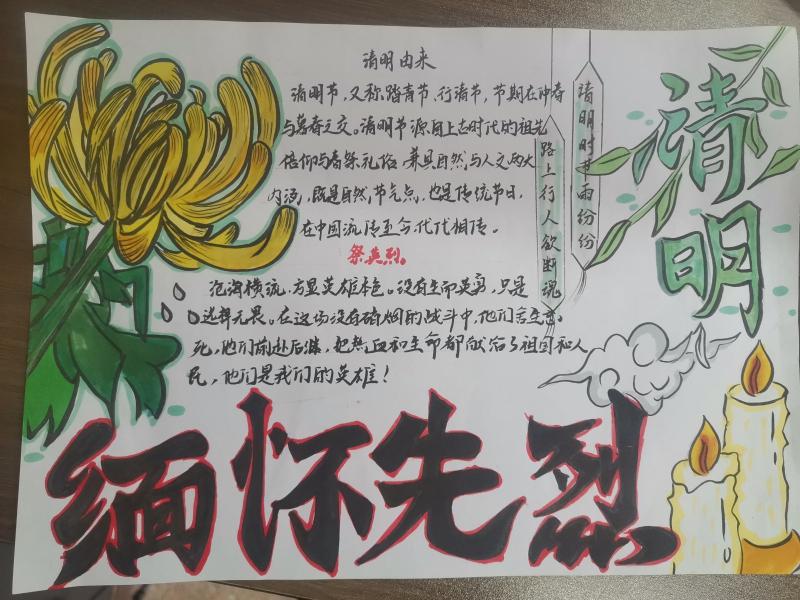 清明由来
清明节，又称踏青节、行清节，节期在仲春
与暮春之交。清明节源自上古时代的祖先
信仰与春祭礼俗，兼具自然与人文两大
内涵，既是自然节气点，也是传统节日，
在中国流传至今代代相传。
祭英烈。
沧海横流，方显英雄本色。没有生而英勇，只是
选择无畏。在这场没有硝烟的战斗中，他们舍生忘
死，他们前赴后继，把热血和生命都献给了祖国和人
民，他们是我们的英雄！
清明时节雨纷纷
路上行人欲断魂
清明
缅怀先烈